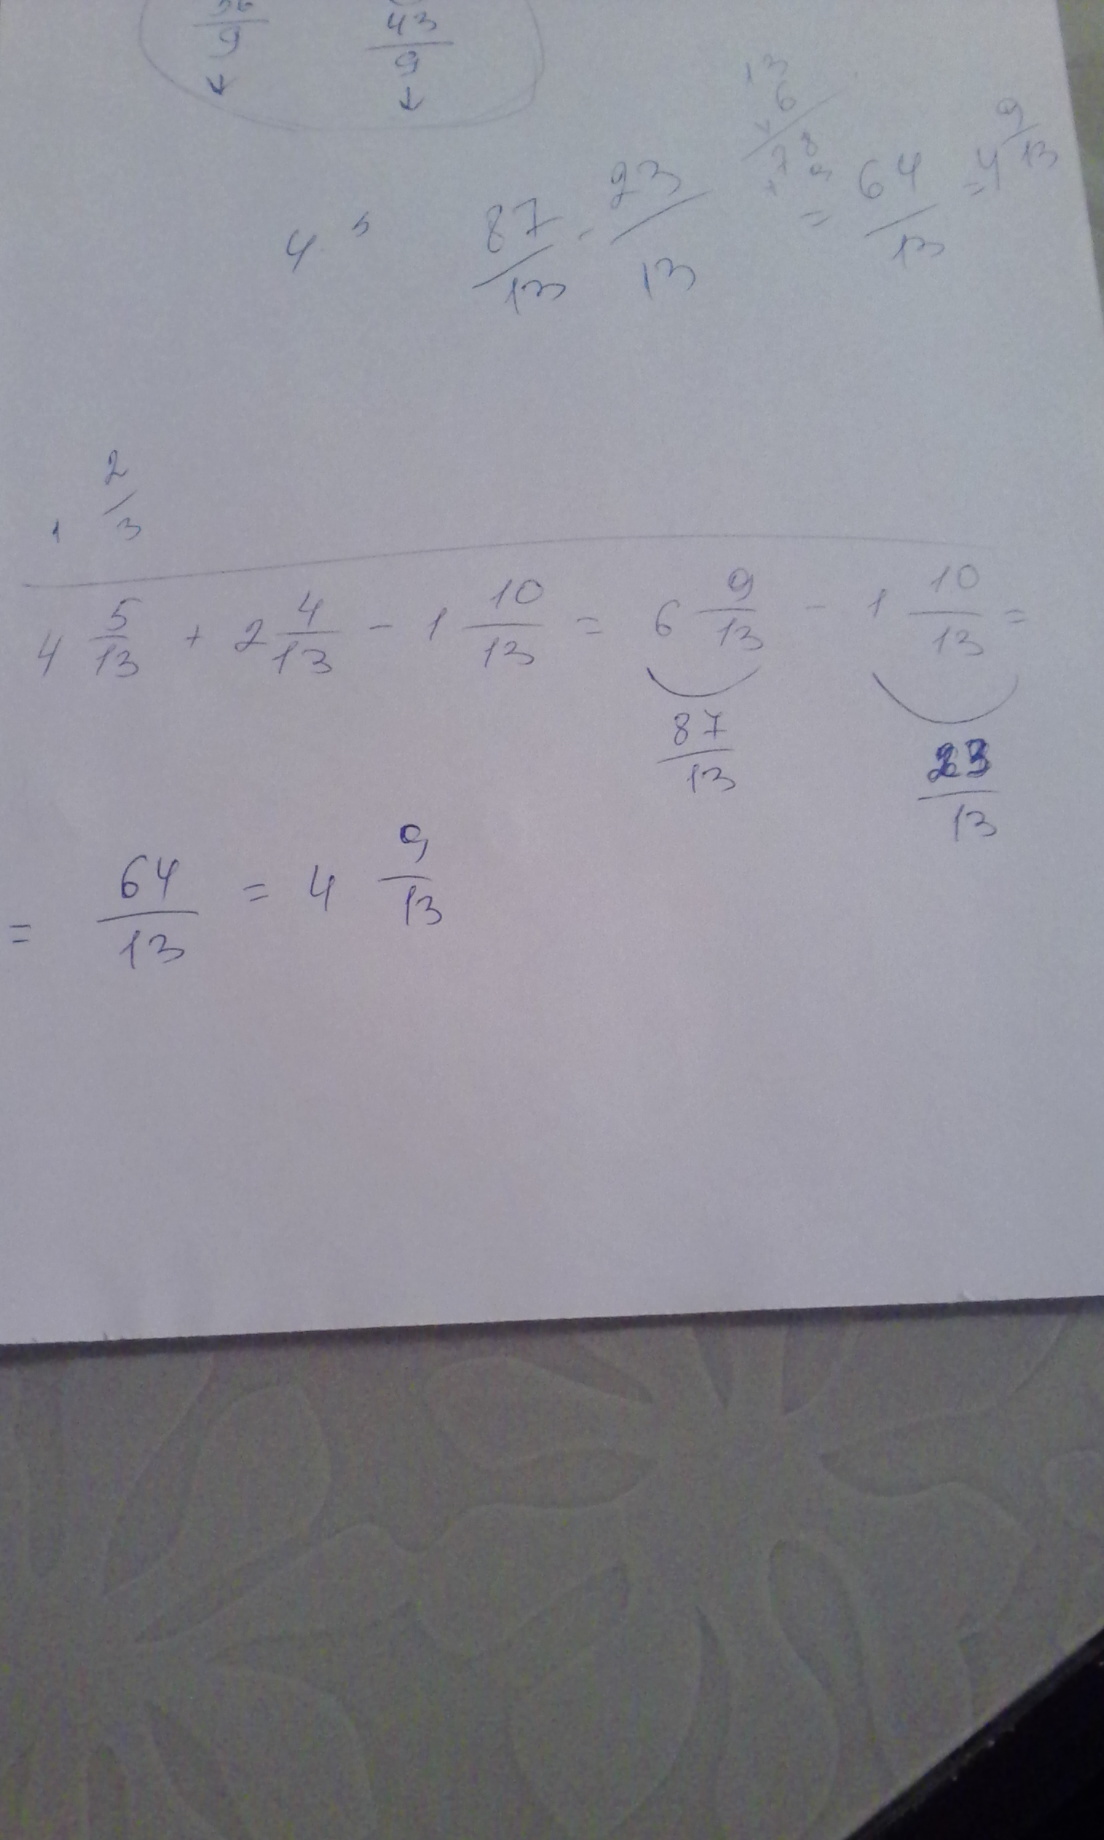 9 43
9
↓ ↓
13
6
78
9
87/13 - 23/13 = 64/13 = 4 9/13
4 5
1 2/3
4 5/13 + 2 4/13 - 1 10/13 = 6 9/13 - 1 10/13 =
87/13 23/13
= 64/13 = 4 9/13